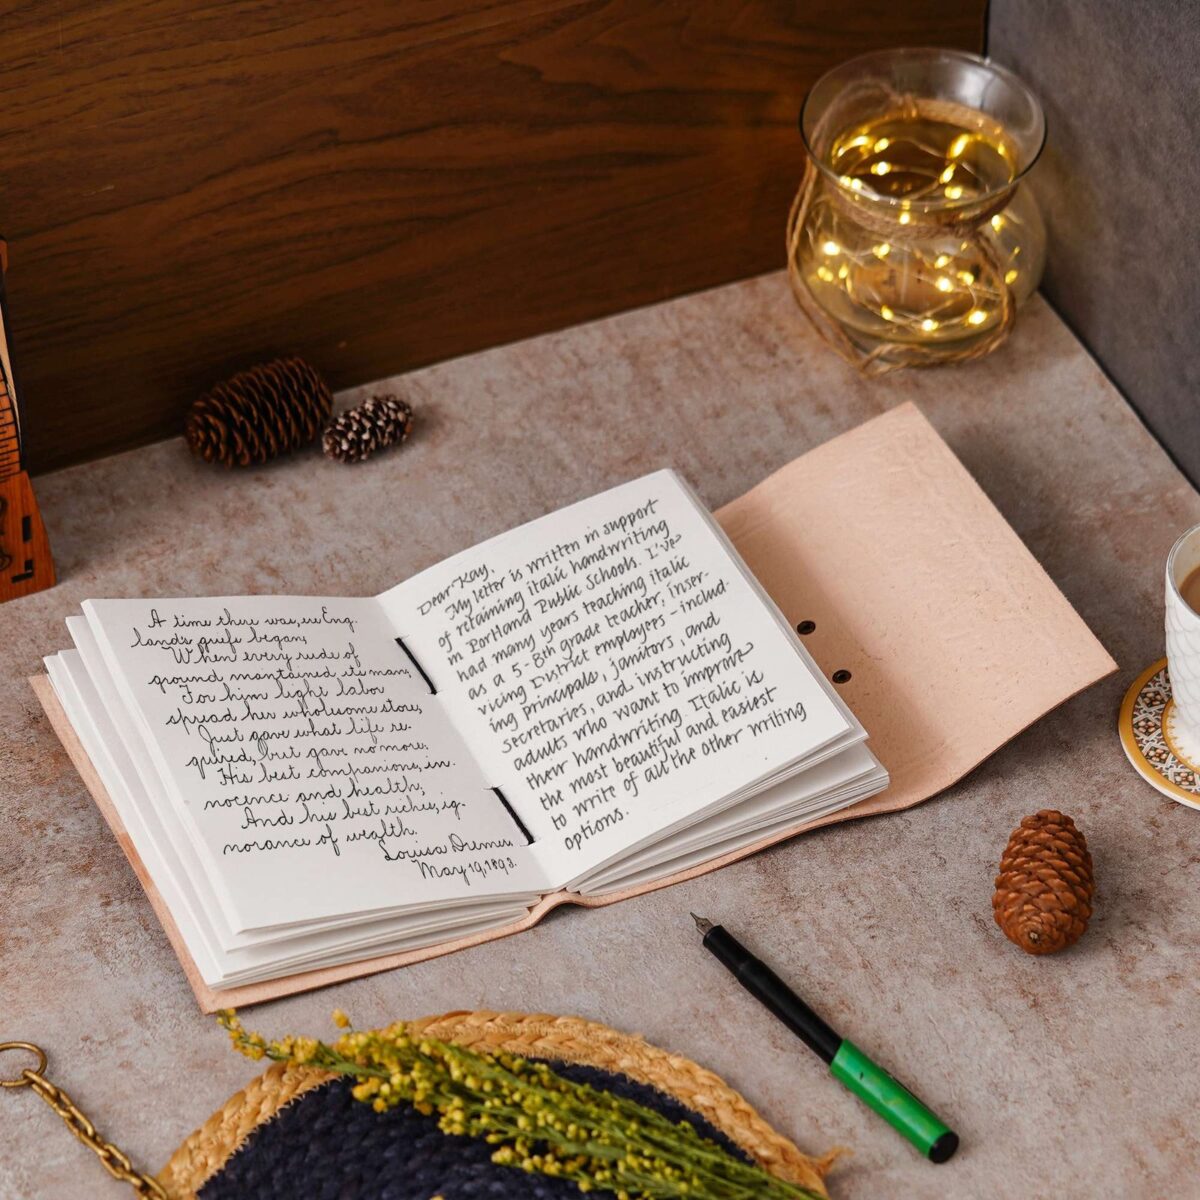 A time there was, ere Eng-
land's griefs began,
When every rude of
ground maintained its man;
For him light labor
spread her wholesome store,
Just gave what life re-
quired, but gave no more:
His best companions, in-
nocence and health;
And his best riches, ig-
norance of wealth.
Louisa
May 19, 1893.
Dear Kay,
My letter is written in support
of retaining italic handwriting
in Portland Public Schools. I've
had many years teaching italic
as a 5-8th grade teacher, inser-
vicing District employees - includ
ing principals, janitors, and
secretaries, and instructing
adults who want to improve
their handwriting. Italic is
the most beautiful and easiest
to write of all the other writing
options.